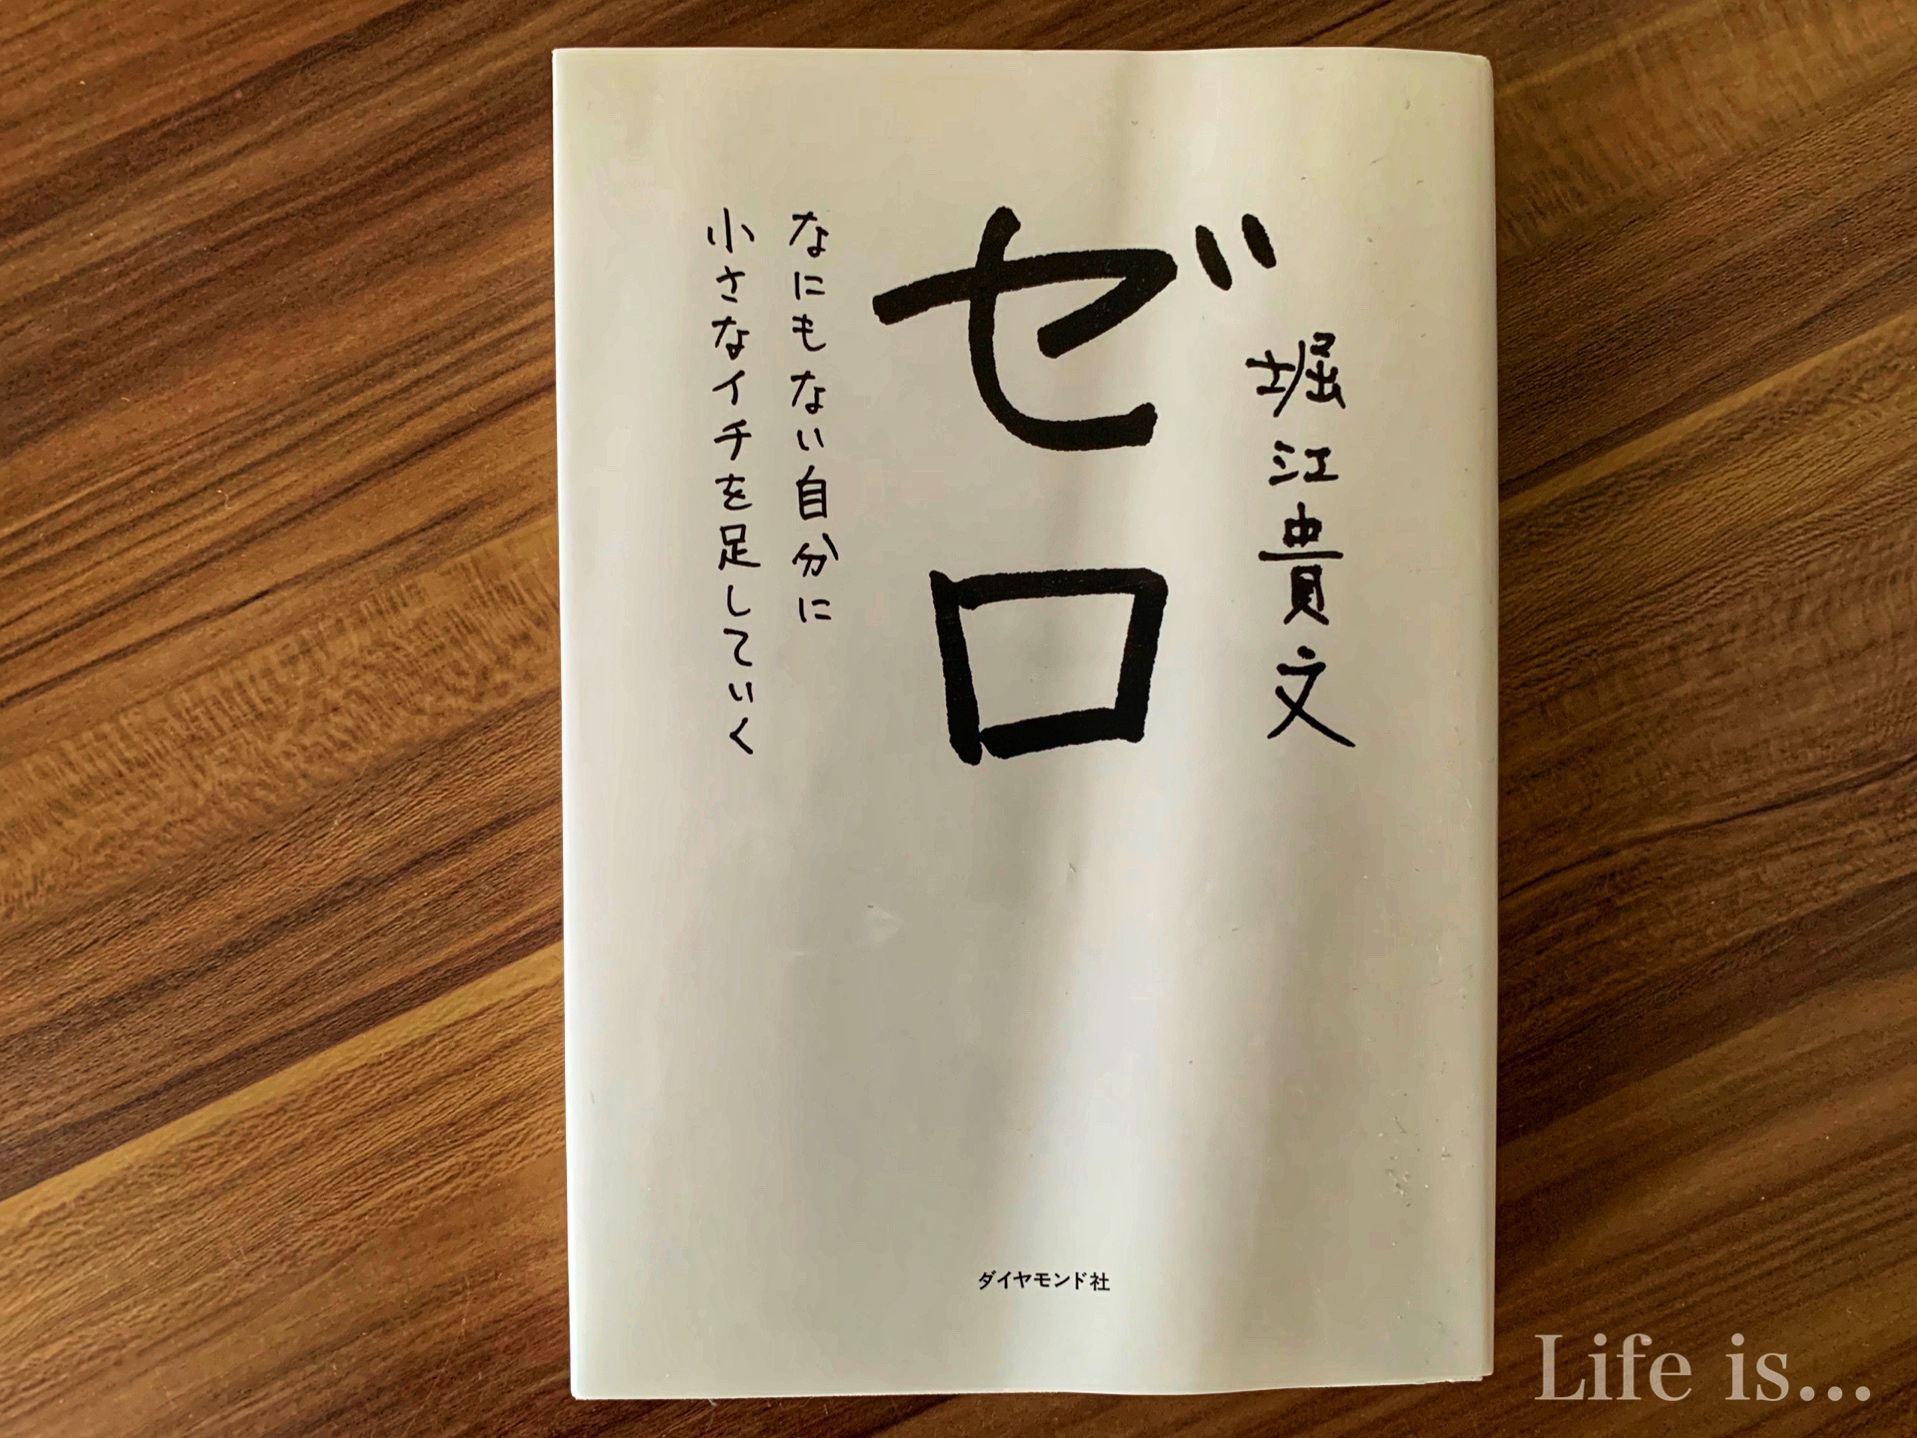 堀江貴文
ゼロ
なにもない自分に
小さなイチを足していく
ダイヤモンド社
Life is...